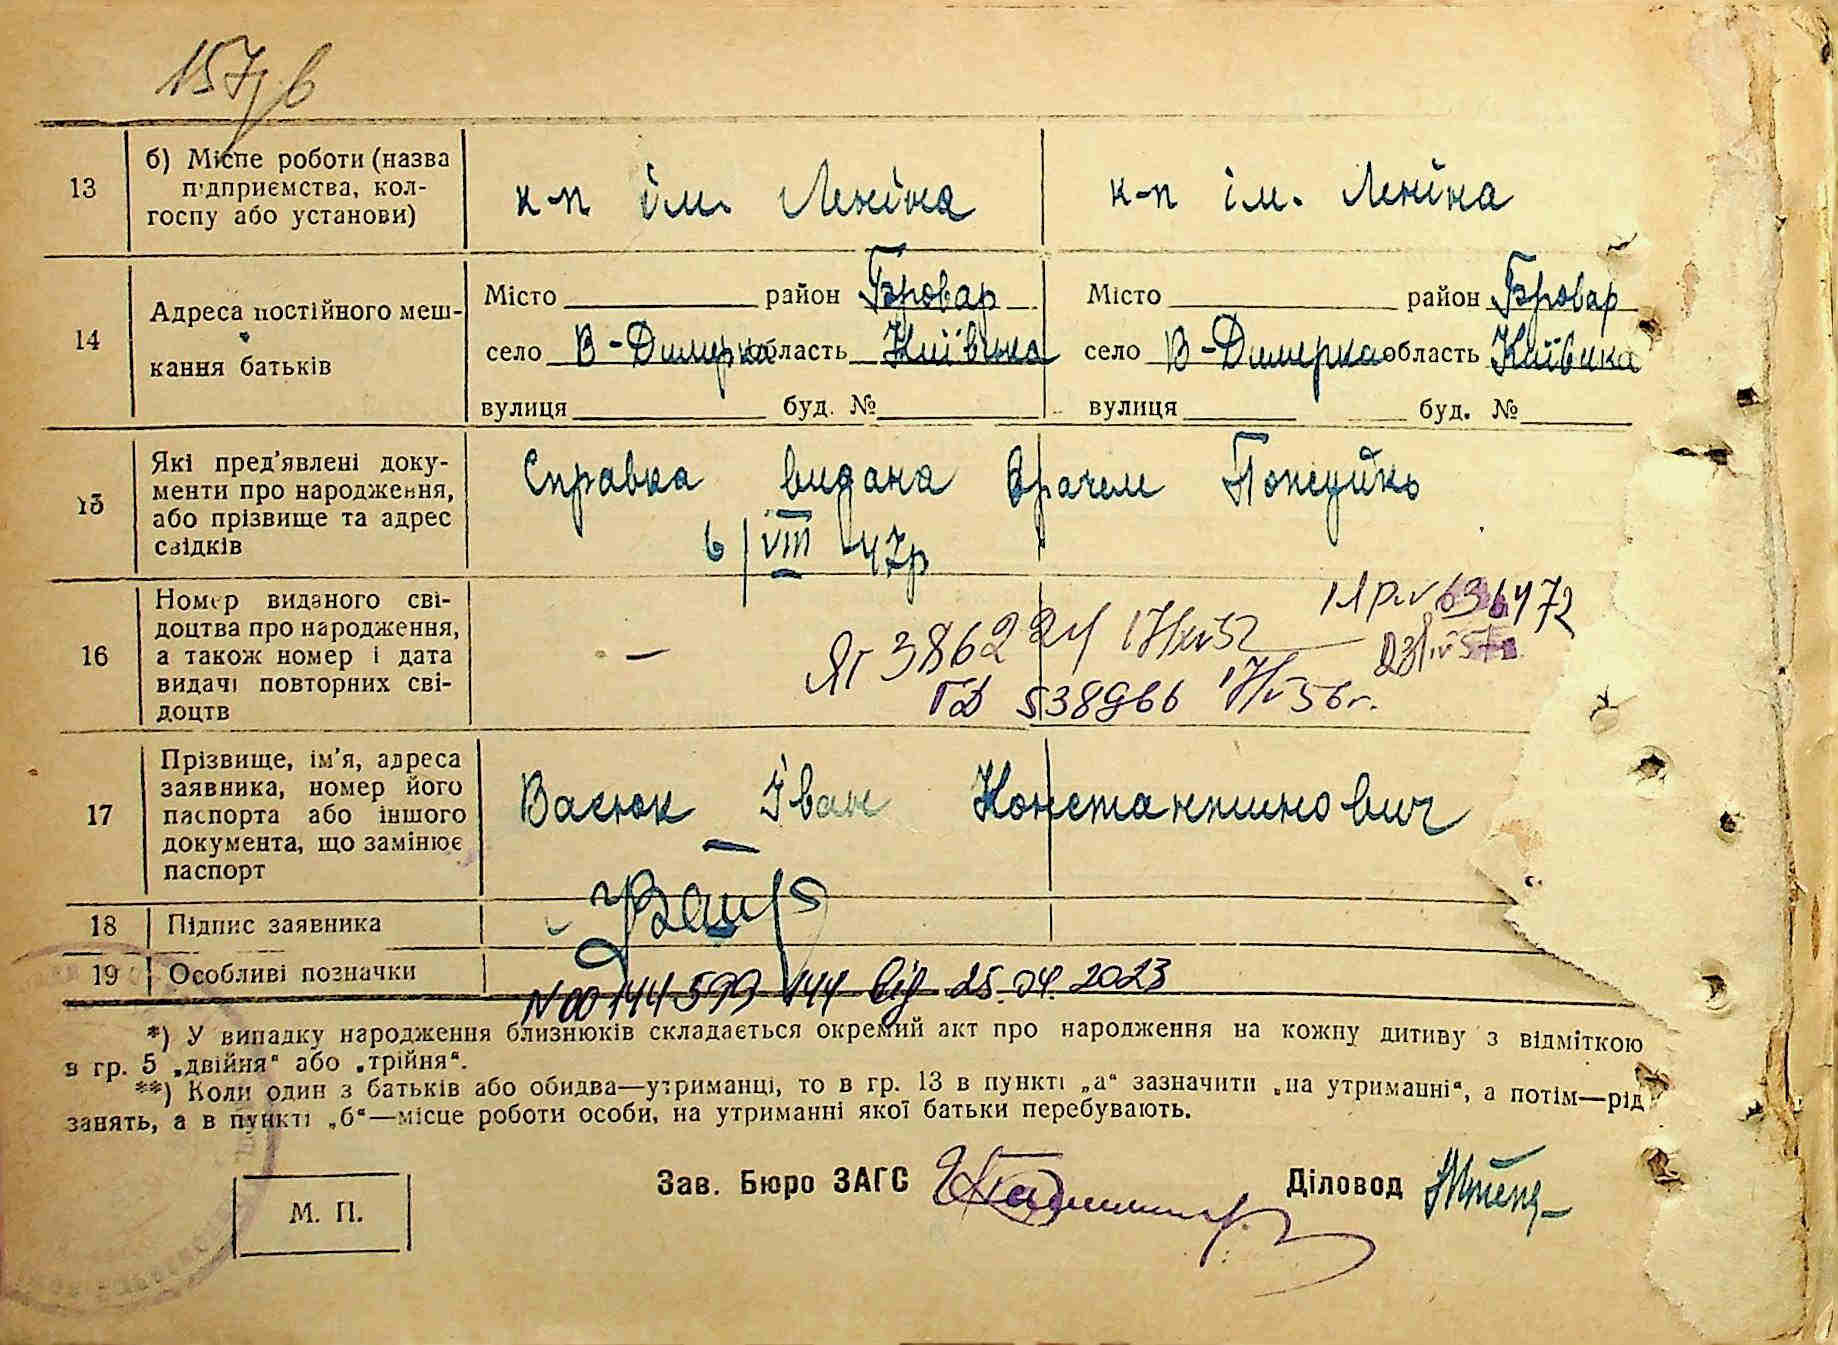 157 зв
13 б) Місце роботи (назва підприємства, колгоспу або установи) к-п ім. Леніна к-п ім. Леніна
14 Адреса постійного мешкання батьків
Місто район Бровар Місто район Бровар
село В-Димерка область Київська село В-Димерка область Київська
вулиця буд. № вулиця буд. №
15 Які пред'явлені документи про народження, або прізвище та адрес свідків
Справка видана врачем
6/VIII 47р
16 Номер виданого свідоцтва про народження, а також номер і дата видачі повторних свідоцтв
—
ЯГ 386224
538966 17/V 56 г.
17 Прізвище, ім'я, адреса заявника, номер його паспорта або іншого документа, що замінює паспорт
Васюк Іван Константинович
18 Підпис заявника
19 Особливі позначки
N 00144599444 від 25.04.2023
*) У випадку народження близнюків складається окремий акт про народження на кожну дитину з відміткою
в гр. 5 „двійня“ або „трійня“.
**) Коли один з батьків або обидва—утриманці, то в гр. 13 в пункті „а“ зазначити „на утриманні“, а потім—рід
занять, а в пункті „б“—місце роботи особи, на утриманні якої батьки перебувають.
Зав. Бюро ЗАГС Діловод
М. П.